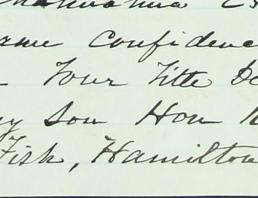 same Confidence
Your Title De
my son Hon H
Fish, Hamilton